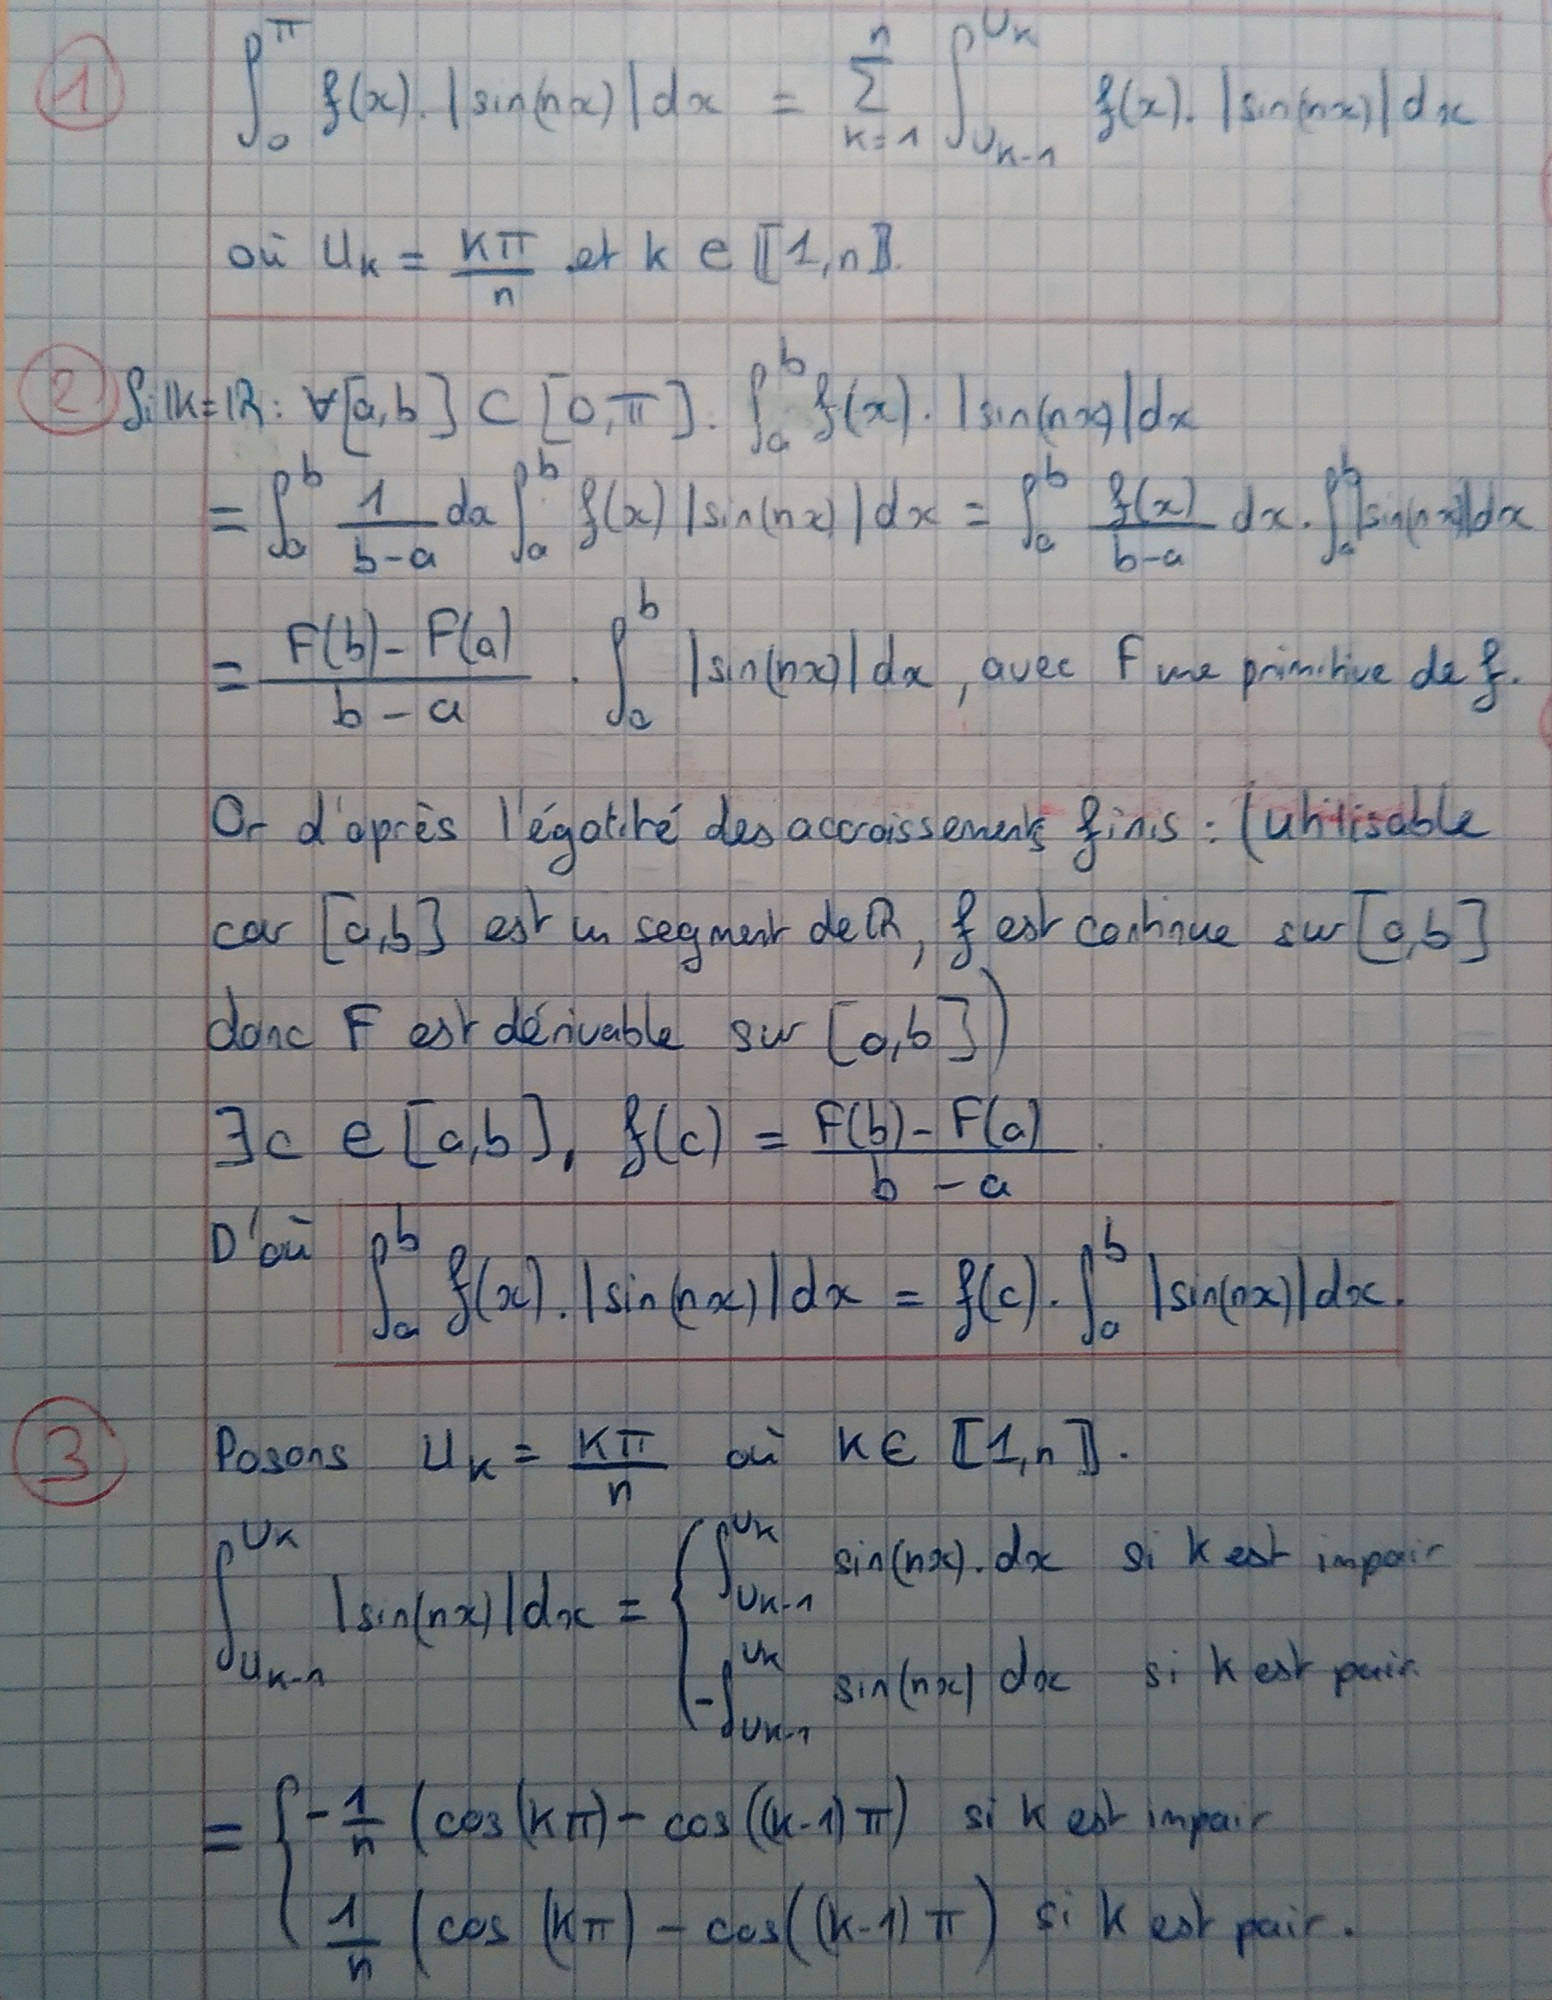 ① ∫₀^π f(x).|sin(nx)|dx = Σ_{k=1}^{n} ∫_{U_{k-1}}^{U_k} f(x).|sin(nx)|dx
où U_k = kπ/n et k ∈ ⟦1,n⟧.
② Si 𝕂=ℝ: ∀[a,b] ⊂ [0,π]. ∫_a^b f(x).|sin(nx)|dx
= ∫_a^b 1/(b-a) dx ∫_a^b f(x)|sin(nx)|dx = ∫_a^b f(x)/(b-a) dx . ∫_a^b |sin(nx)|dx
= (F(b)-F(a))/(b-a) . ∫_a^b |sin(nx)|dx, avec F une primitive de f.
Or d'après l'égalité des accroissements finis : (utilisable
car [a,b] est un segment de ℝ, f est continue sur [a,b]
donc F est dérivable sur [a,b])
∃c ∈ [a,b], f(c) = (F(b)-F(a))/(b-a).
D'où ∫_a^b f(x).|sin(nx)|dx = f(c).∫_a^b |sin(nx)|dx.
③ Posons U_k = kπ/n où k ∈ ⟦1,n⟧.
∫_{U_{k-1}}^{U_k} |sin(nx)|dx = { ∫_{U_{k-1}}^{U_k} sin(nx).dx si k est impair
-∫_{U_{k-1}}^{U_k} sin(nx) dx si k est pair.
= { -1/n (cos(kπ) - cos((k-1)π) si k est impair
1/n (cos(kπ) - cos((k-1)π) si k est pair.